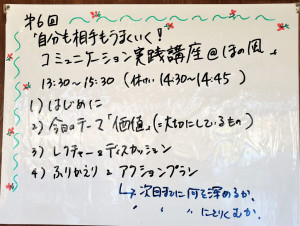 第6回
「自分も相手もうまくいく!
コミュニケーション実践講座@ほの風」
13:30〜15:30 (休けい 14:30〜14:45)
1) はじめに
2) 今回のテーマ「価値」(=大切にしているもの)
3) レクチャー&ディスカッション
4) ふりかえり&アクションプラン
↳次回までに何を深めるか、
〃 〃 にとりくむか、